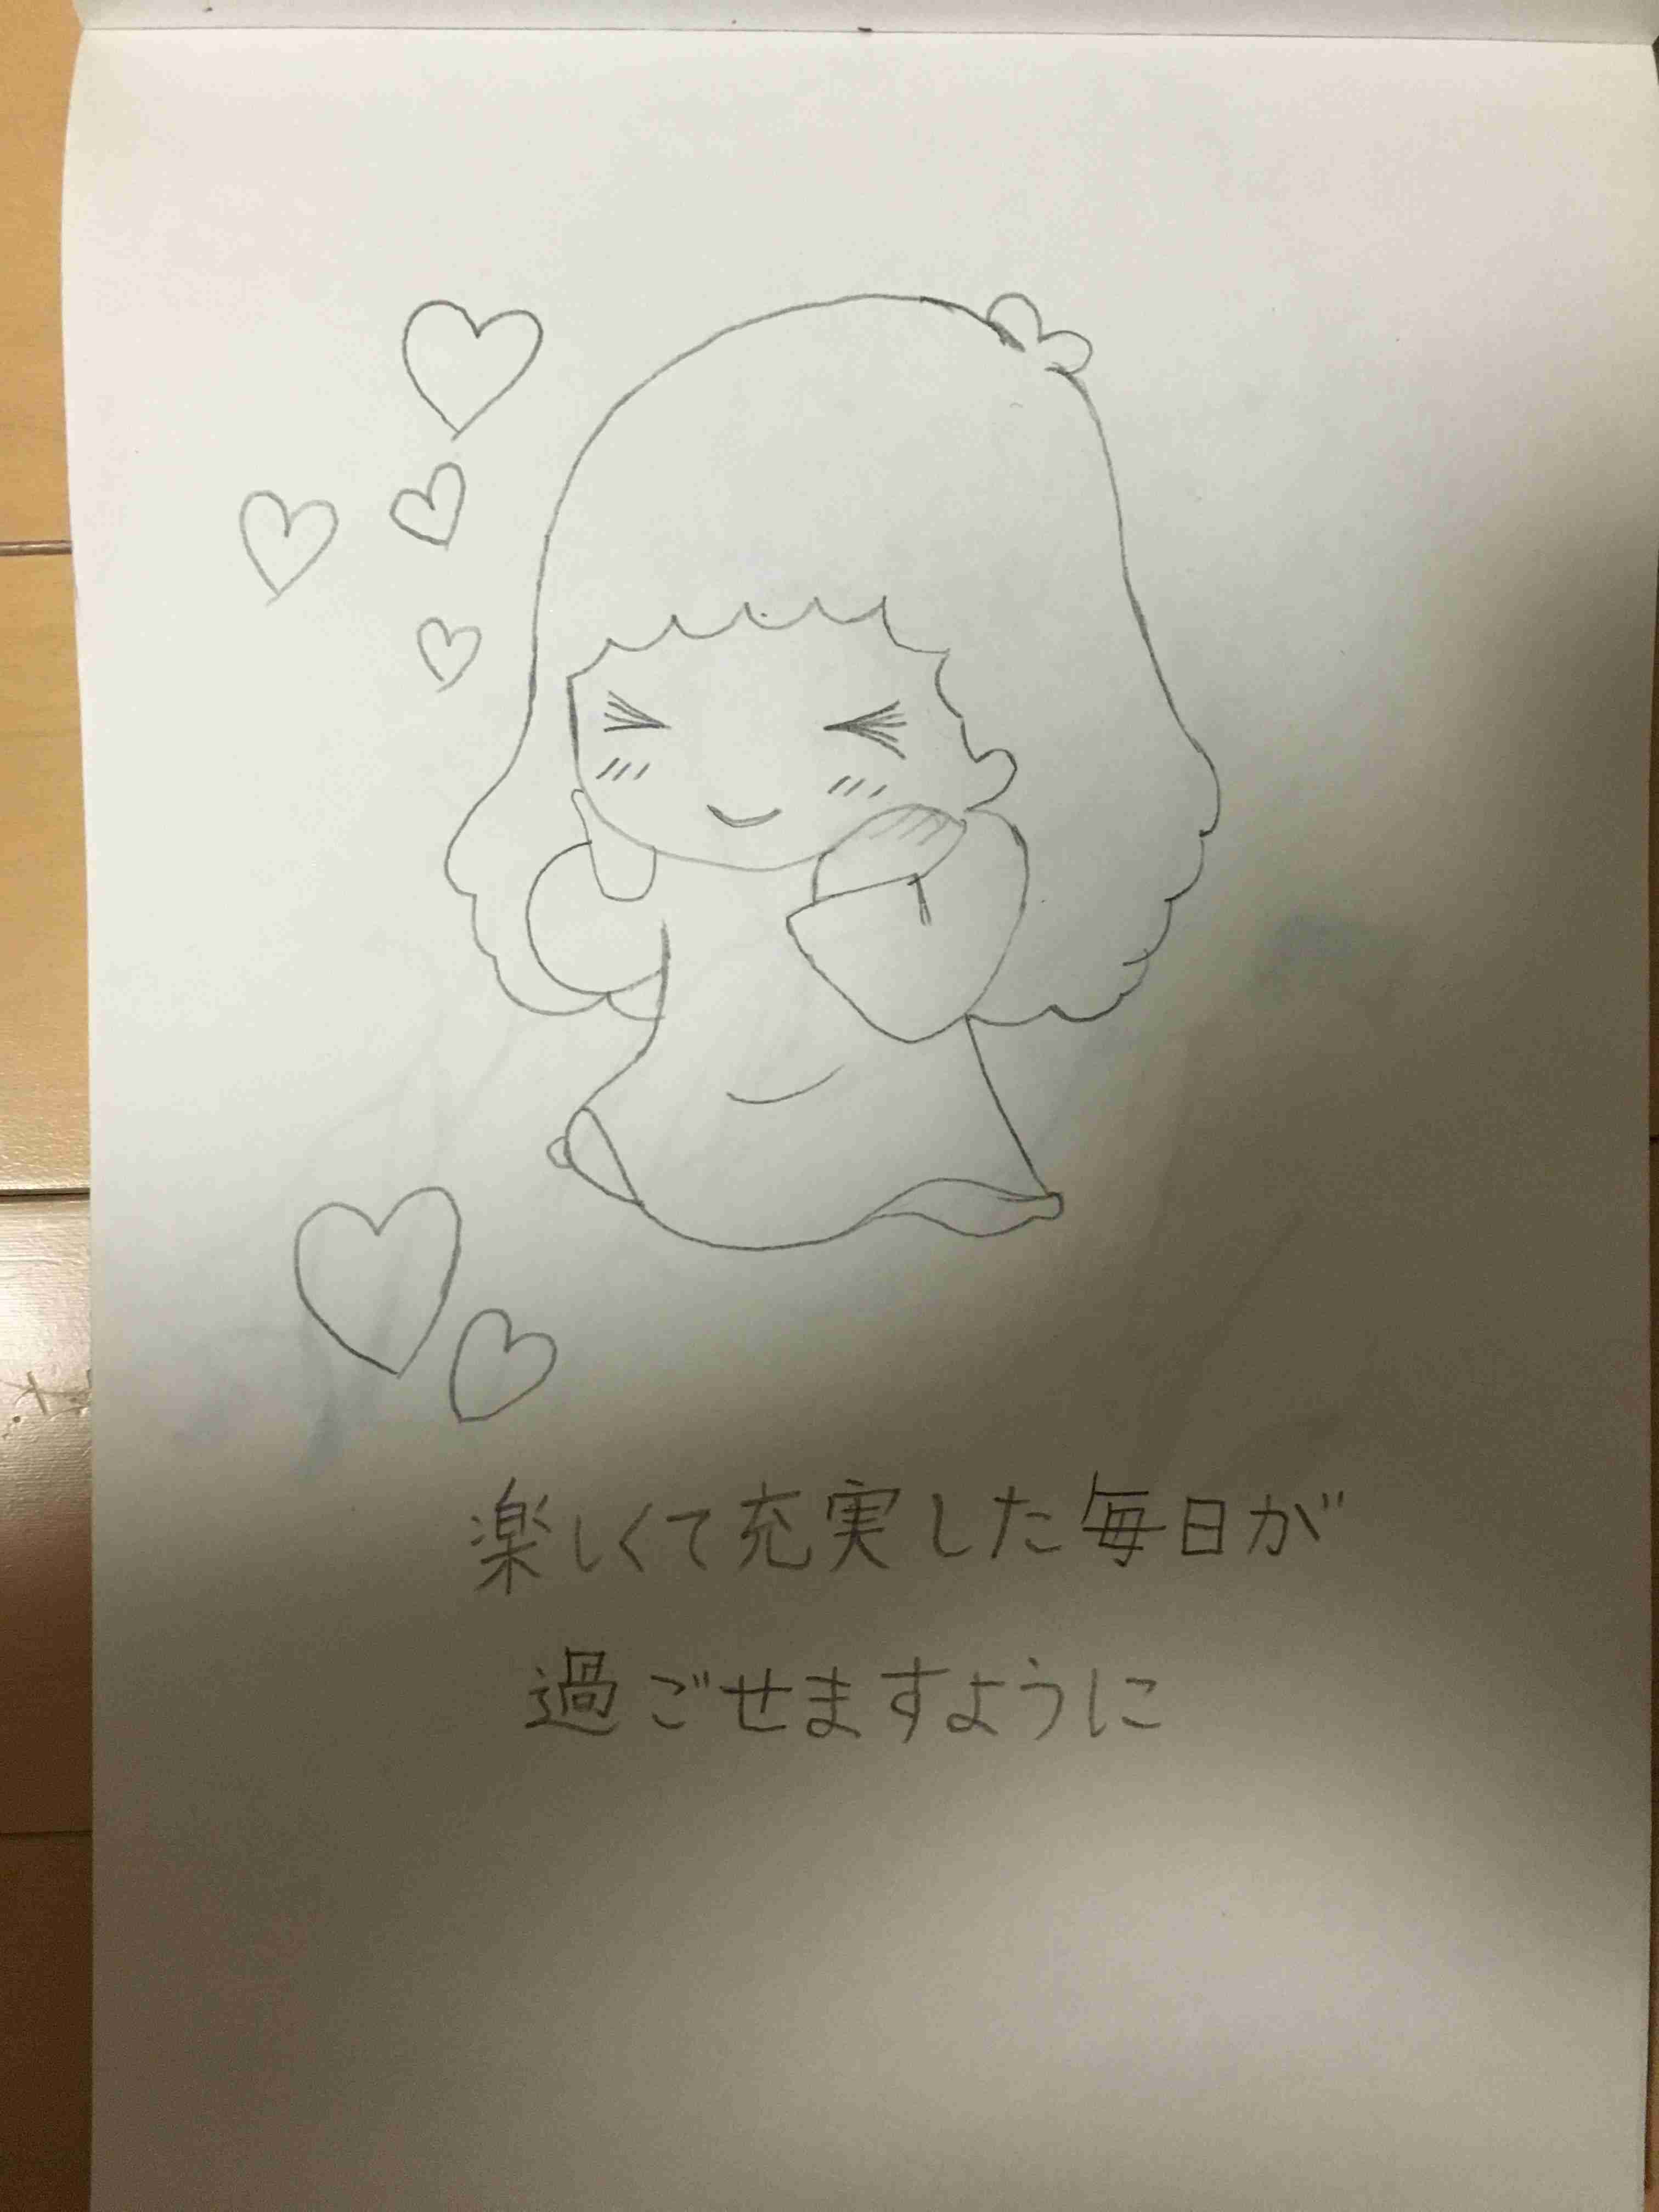 楽しくて充実した毎日が
過ごせますように